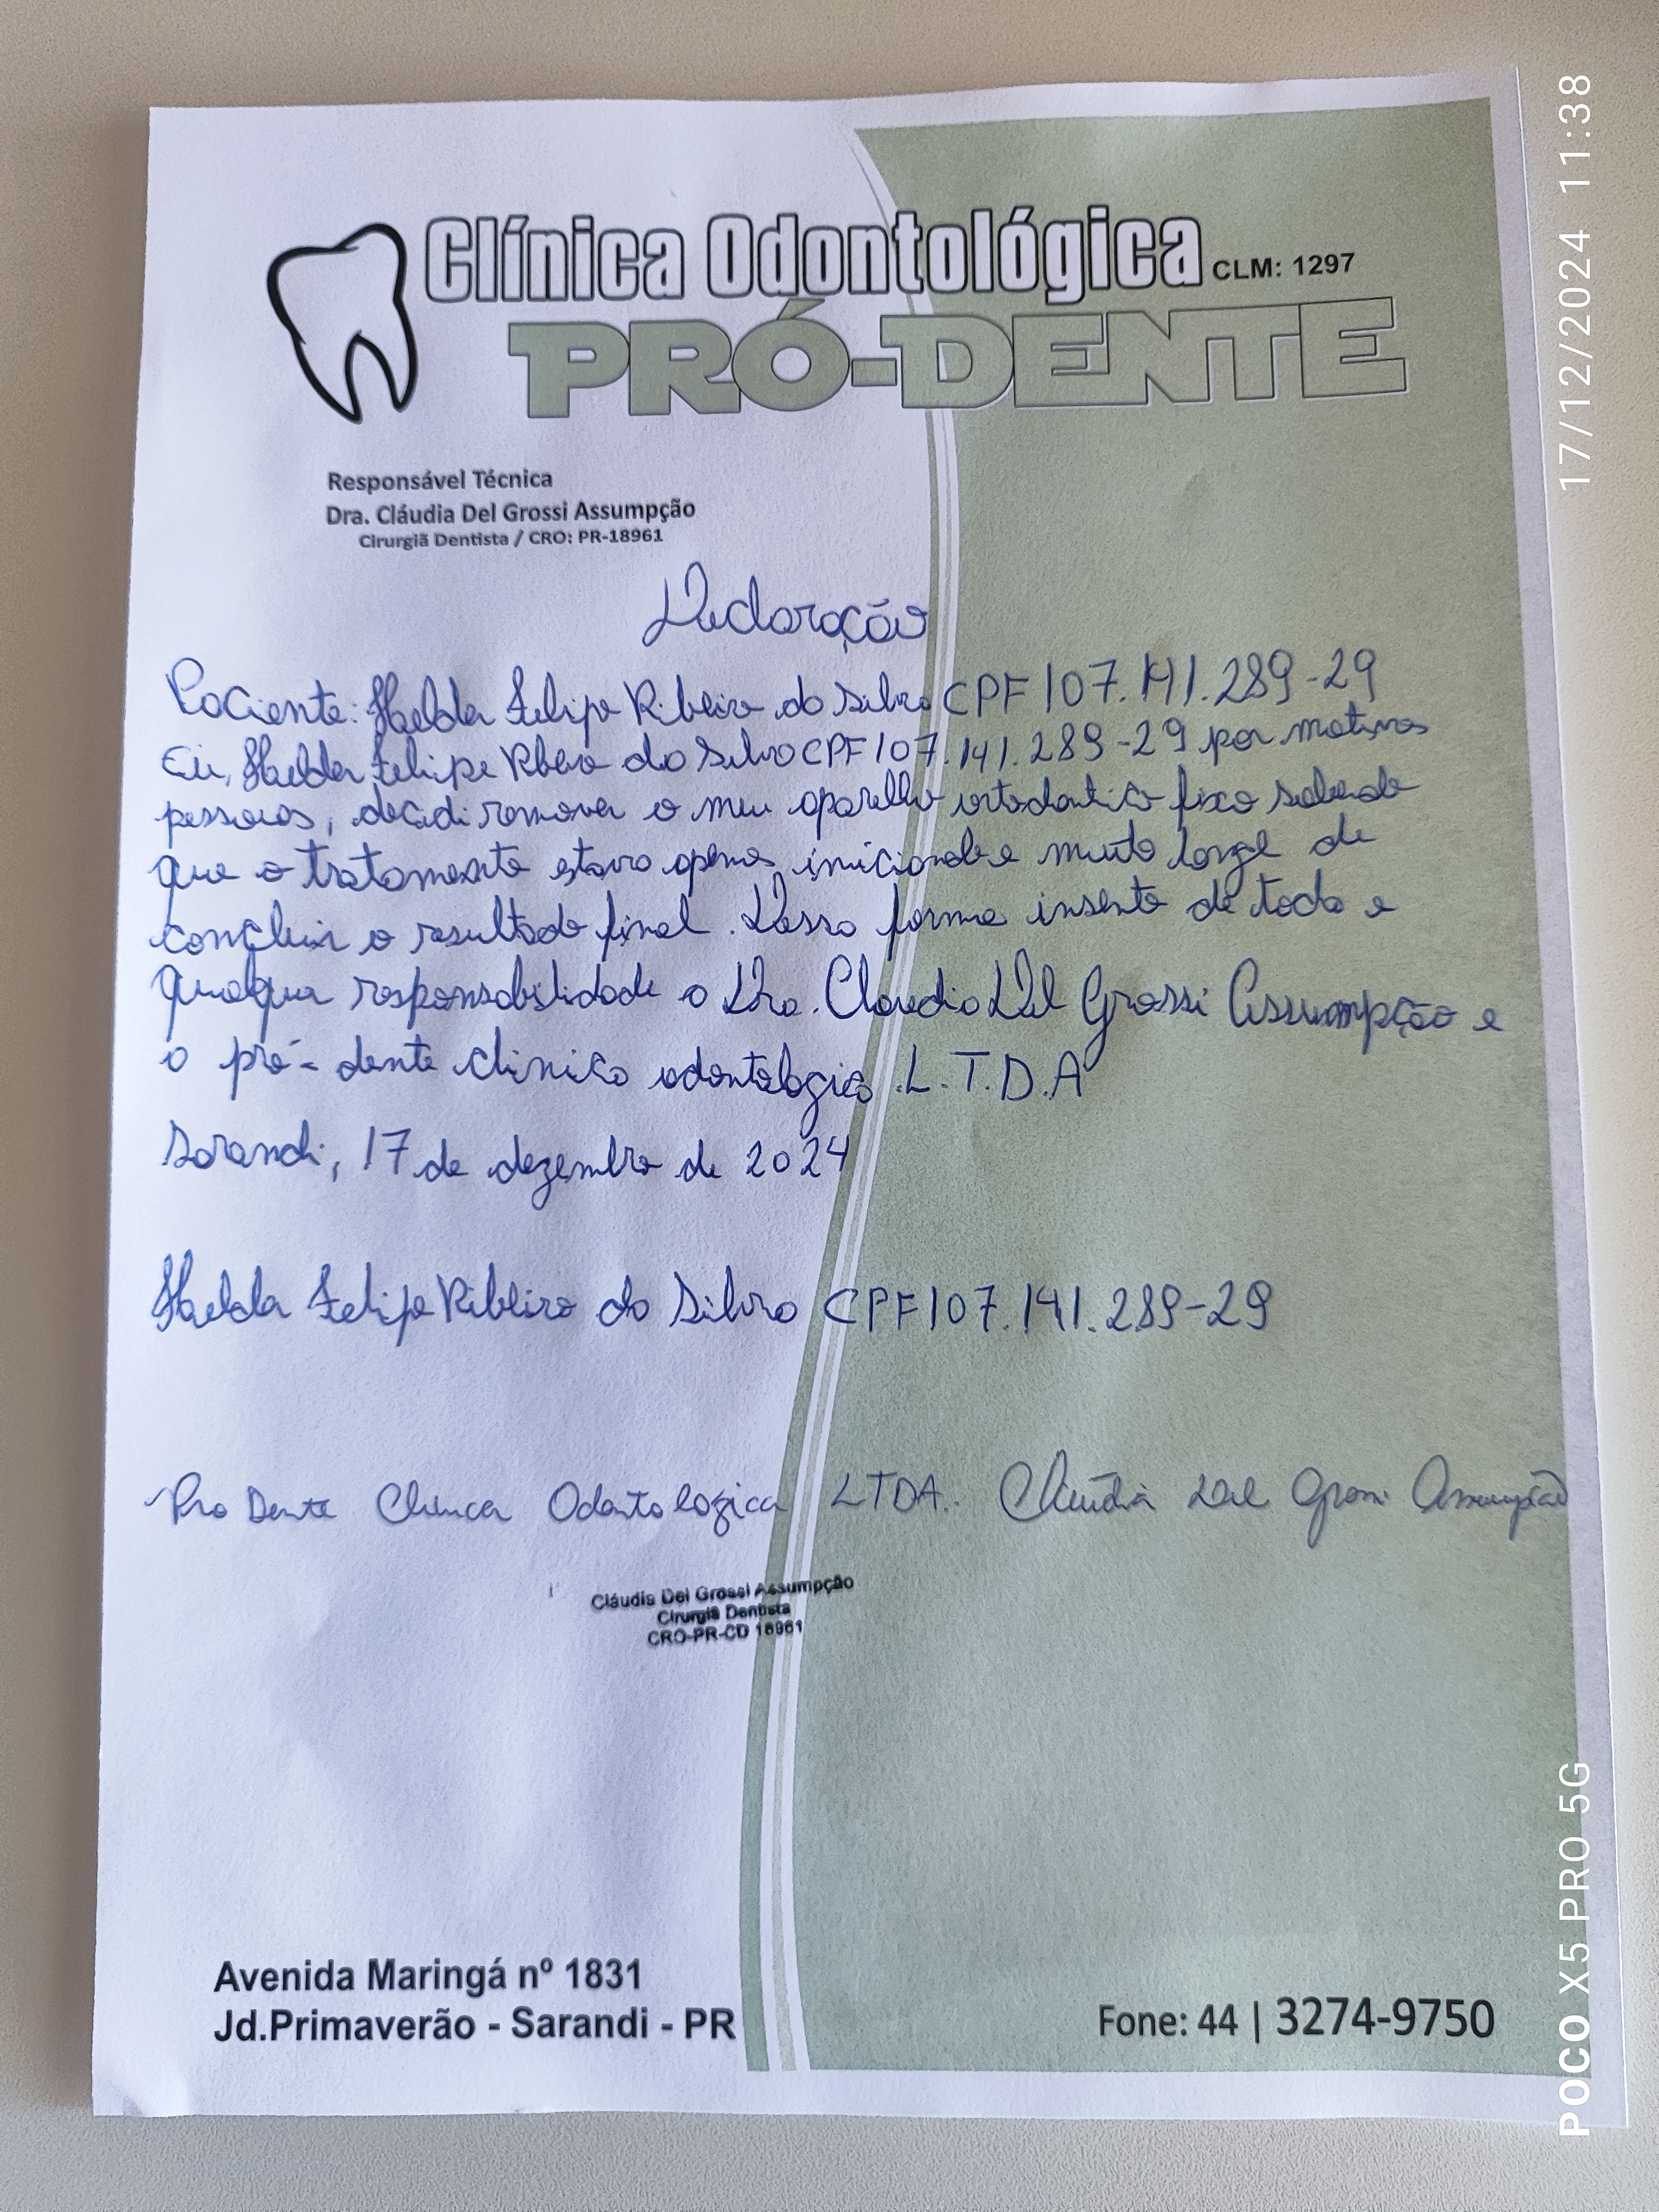 Clínica Odontológica CLM: 1297
PRÓ-DENTE
Responsável Técnica
Dra. Cláudia Del Grossi Assumpção
Cirurgiã Dentista / CRO: PR-18961
Declaração
Paciente: Felipe Ribeiro da Silva CPF 107.141.289-29
Eu, Felipe Ribeiro da Silva CPF 107.141.289-29 por motivos
pessoais, decidi remover o meu aparelho ortodontico fixo sabendo
que o tratamento estava apenas iniciando e muito longe de
concluir o resultado final. Dessa forma insento de toda e
qualquer responsabilidade a Dra. Claudia Del Grossi Assumpção e
a pró-dente clinica odontologica L.T.D.A
Sarandi, 17 de dezembro de 2024
Felipe Ribeiro da Silva CPF 107.141.289-29
Pro Dente Clinica Odontologica LTDA. Cláudia Del Grossi Assumpção
Cláudia Del Grossi Assumpção
Cirurgiã Dentista
CRO-PR-CD 18961
Avenida Maringá nº 1831
Jd.Primaverão - Sarandi - PR
Fone: 44 | 3274-9750
17/12/2024 11:38
POCO X5 PRO 5G